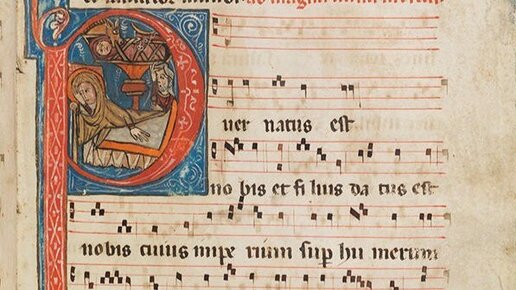 ad magnam missam
uer natus est
no bis et fi lius da tus est
nobis cuius impe rium sup hu merum